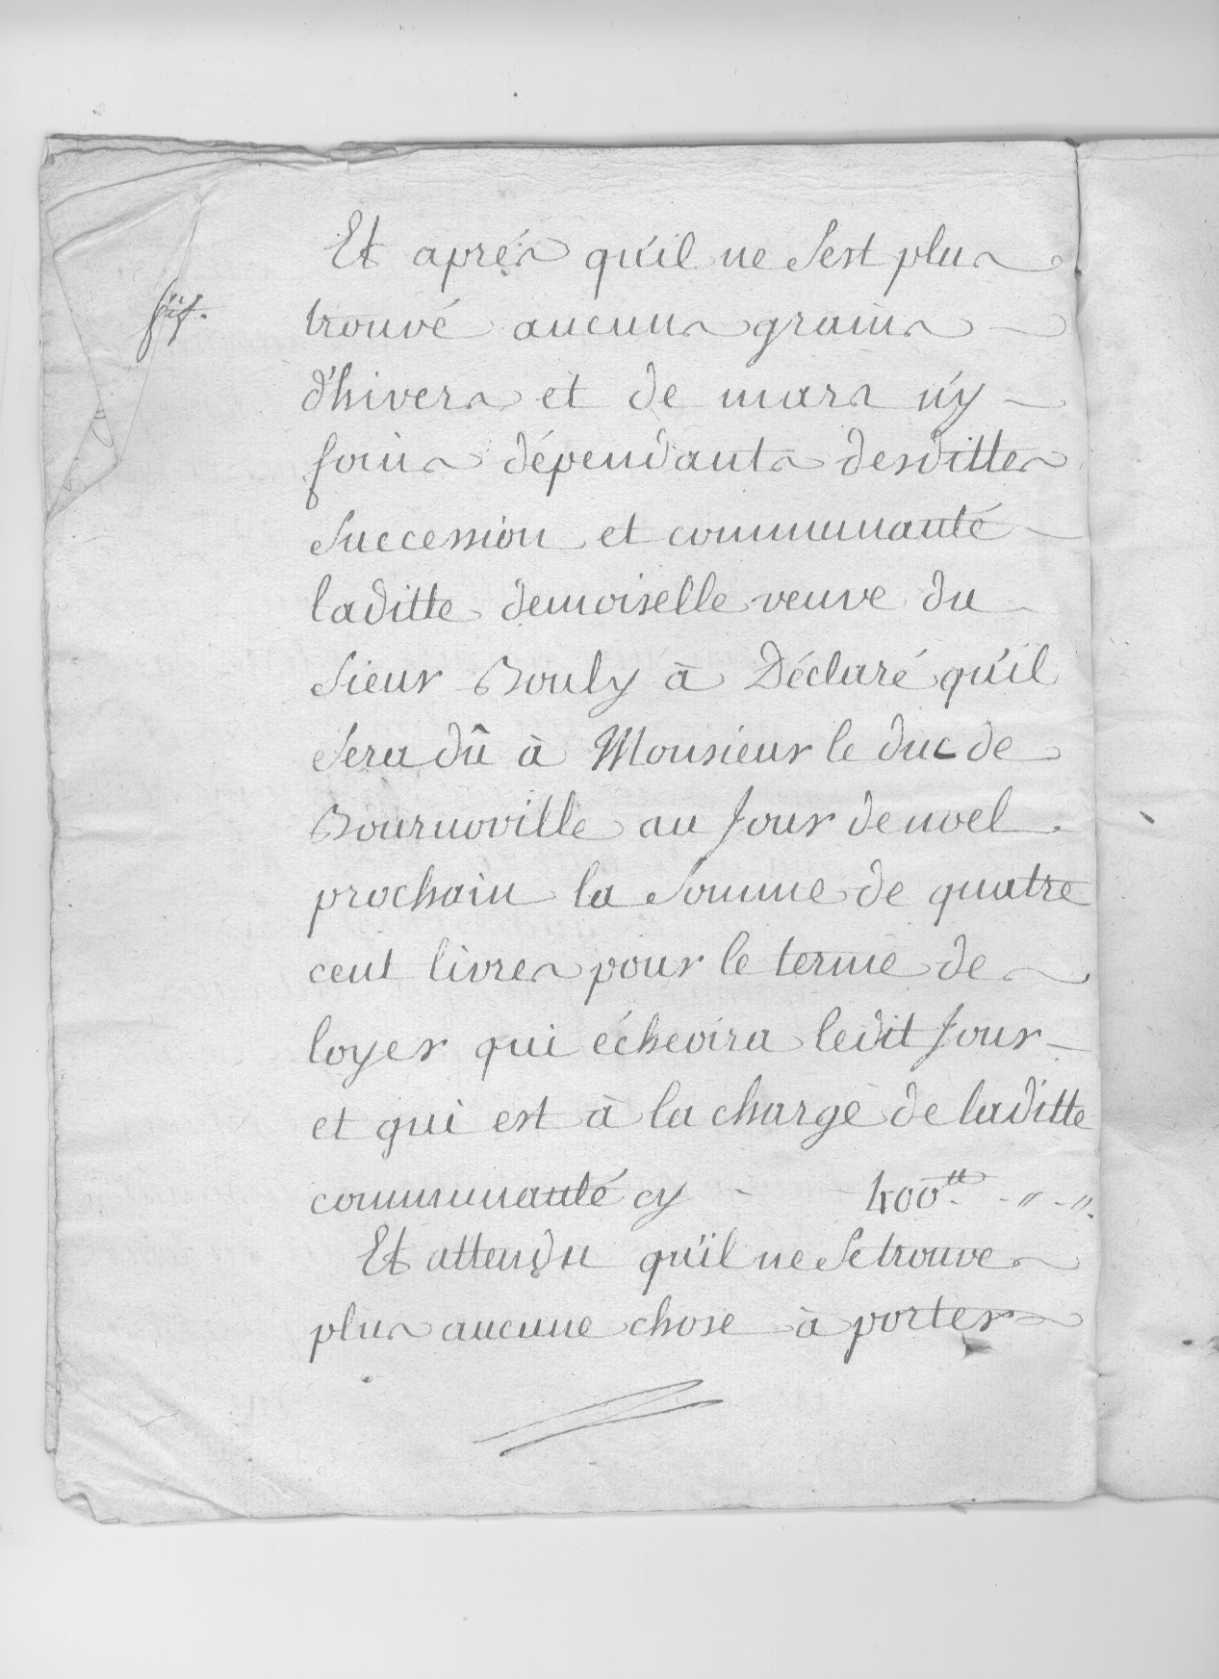 Et aprés qu'il ne s'est plus
trouvé aucuns grains
d'hivers et de mars n'y
foins dépendants desdittes
Succession et communauté
laditte demoiselle veuve du
Sieur Bouly à Déclaré qu'il
Sera dû à Monsieur le duc de
Bournoville au Jour de noel
prochain la Somme de quatre
cent livres pour le terme de
loyer qui écheoira ledit Jour
et qui est à la charge de laditte
communauté cy - 400tt - " - ".
Et attendu qu'il ne Se trouve
plus aucune chose à porter